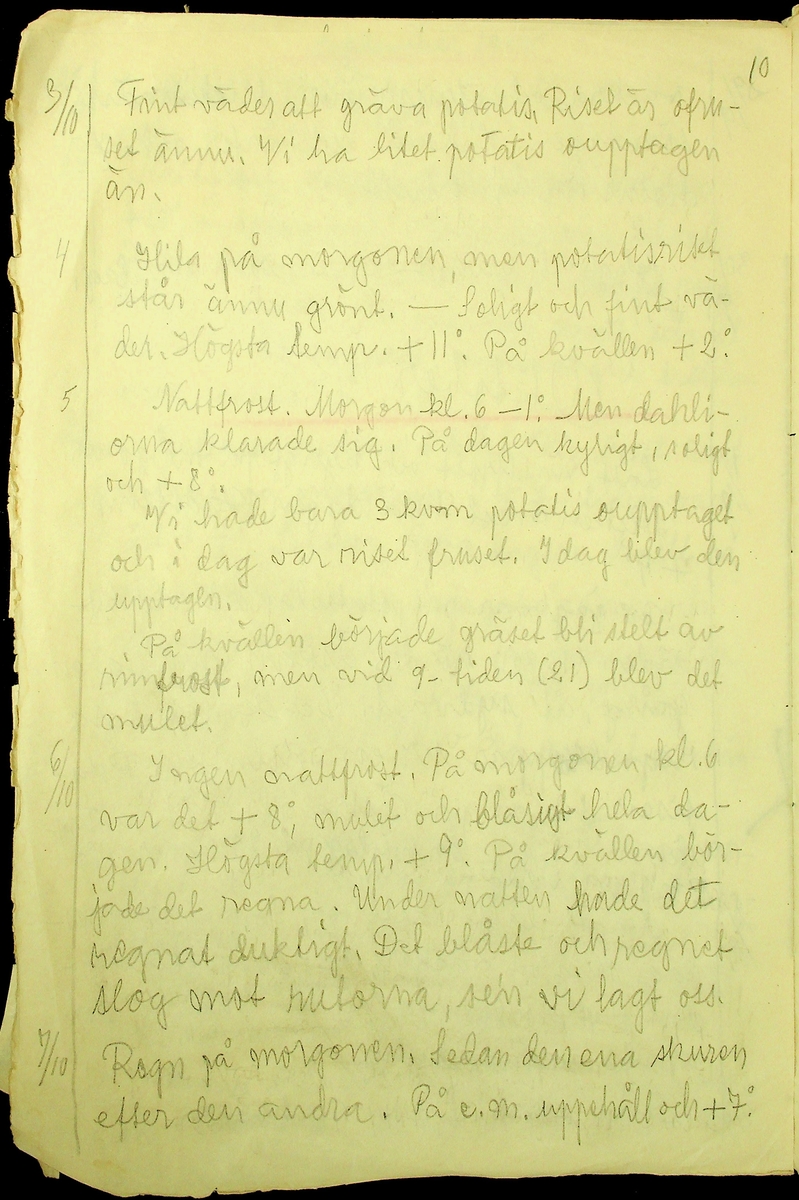 10
3/10 Fint väder att gräva potatis. Riset är ofru-
set ännu. Vi ha litet potatis oupptagen
än.
4 Hila på morgonen, men potatisriset
står ännu grönt. — Soligt och fint vä-
der. Högsta temp. + 11°. På kvällen + 2°.
5 Nattfrost. Morgon kl. 6 — 1°. Men dahli-
orna klarade sig. På dagen kyligt, soligt
och + 8°.
Vi hade bara 3 kvm potatis oupptaget
och i dag var riset fruset. I dag blev den
upptagen.
På kvällen började gräset bli stelt av
rimfrost, men vid 9-tiden (21) blev det
mulet.
6/10 Ingen nattfrost. På morgonen kl. 6
var det + 8°, mulet och blåsigt hela da-
gen. Högsta temp. + 9°. På kvällen bör-
jade det regna. Under natten hade det
regnat duktigt. Det blåste och regnet
slog mot rutorna, se'n vi lagt oss.
7/10 Regn på morgonen. Sedan den ena skuren
efter den andra. På e.m. uppehåll och + 7°.